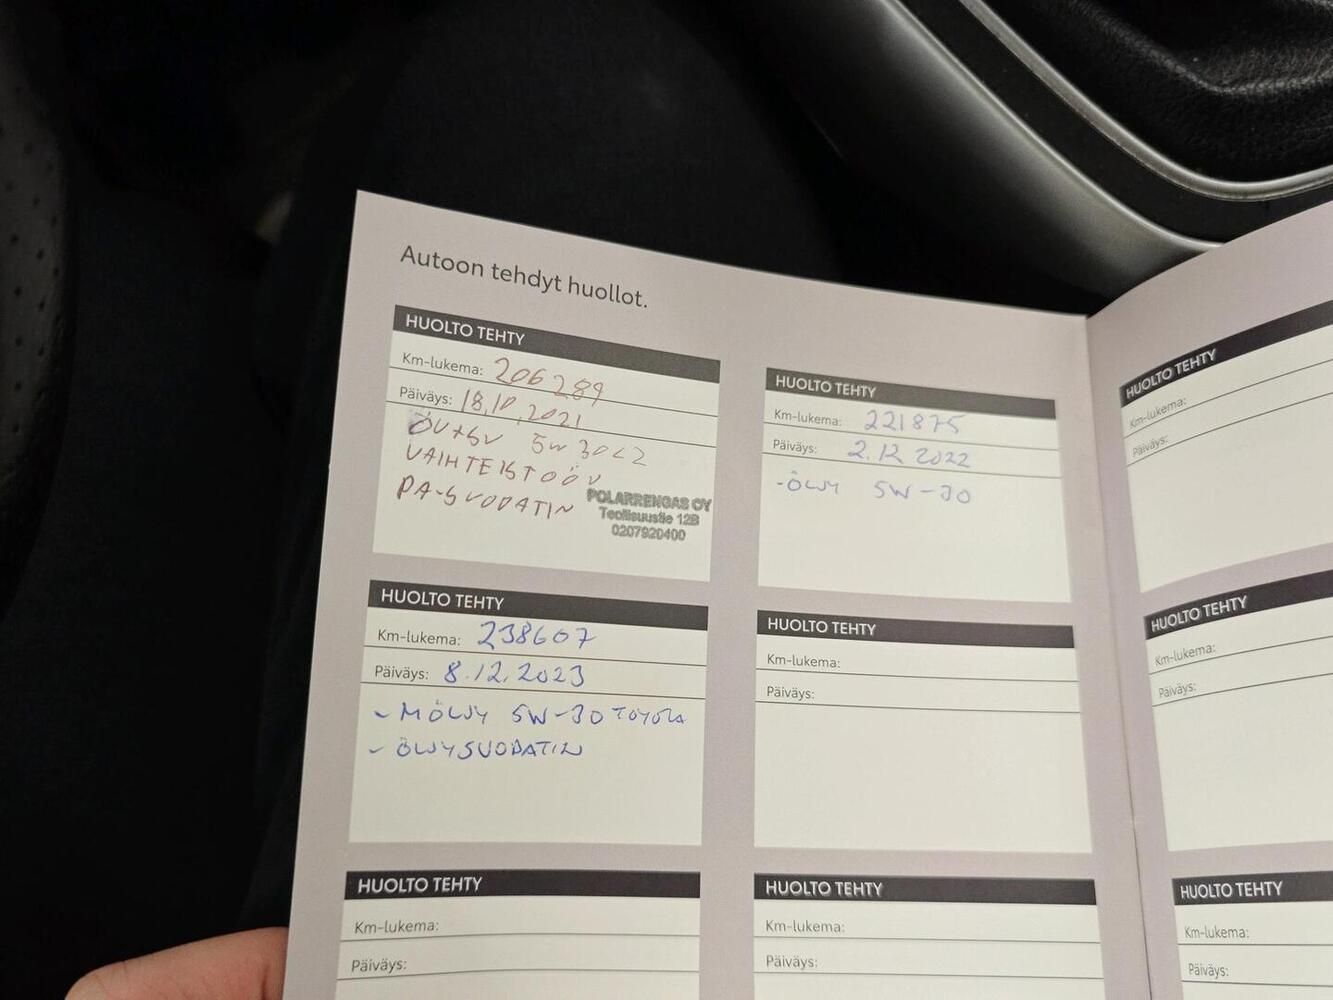 Autoon tehdyt huollot.
HUOLTO TEHTY
Km-lukema: 206289
Päiväys: 18.10.2021
ÖV+SV 5W30C2
VAIHTEISTOÖV
PA-SUODATIN
POLARRENGAS OY
Teollisuustie 12B
0207920400
HUOLTO TEHTY
Km-lukema: 221875
Päiväys: 2.12 2022
-ÖLJY 5W-30
HUOLTO TEHTY
Km-lukema: 238607
Päiväys: 8.12.2023
- MÖLJY 5W-30 TOYOTA
- ÖLJYSUODATIN
HUOLTO TEHTY
Km-lukema:
Päiväys:
HUOLTO TEHTY
Km-lukema:
Päiväys:
HUOLTO TEHTY
Km-lukema:
Päiväys:
HUOLTO TEHTY
Km-lukema:
Päiväys:
HUOLTO TEHTY
Km-lukema:
Päiväys:
HUOLTO TEHTY
Km-lukema:
Päiväys: